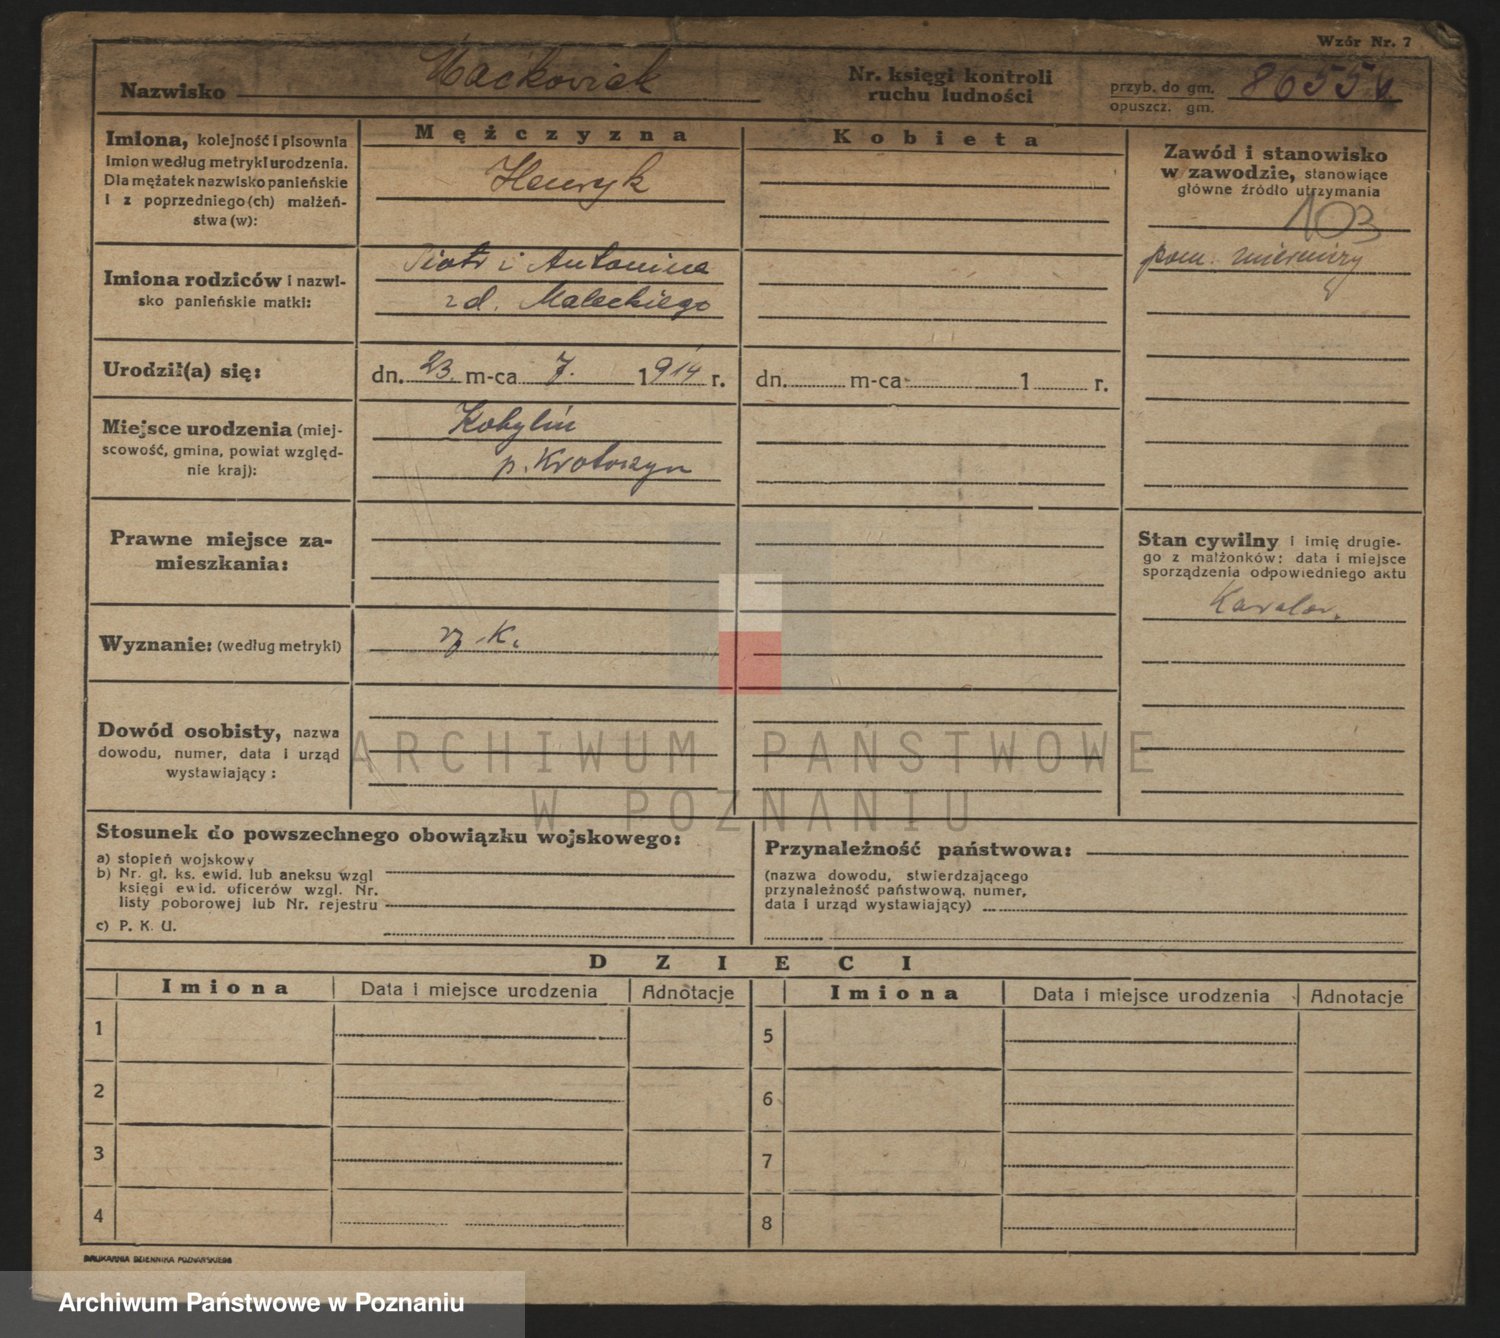 Wzór Nr. 7
Nazwisko Maćkowiak
Nr. księgi kontroli ruchu ludności
przyb. do gm.
opuszcz. gm.
Imiona, kolejność i pisownia
Imion według metryki urodzenia.
Dla mężatek nazwisko panieńskie
i z poprzedniego (ch) małżeń-
stwa (w):
Mężczyzna
Henryk
Kobieta
Zawód i stanowisko
w zawodzie, stanowiące
główne źródło utrzymania
103
pom. mierniczy
Imiona rodziców i nazwi-
sko panieńskie matki:
Piotr i Antonina
zd. Maleckiego
Urodził(a) się:
dn. 23 m-ca 7. 1914 r.
dn. m-ca 1 r.
Miejsce urodzenia (miej-
scowość, gmina, powiat względ-
nie kraj):
Kobylin
p. Krotoszyn
Prawne miejsce za-
mieszkania:
Stan cywilny i imię drugie-
go z małżonków; data i miejsce
sporządzenia odpowiedniego aktu
Kawaler.
Wyznanie: (według metryki)
rz. k.
Dowód osobisty, nazwa
dowodu, numer, data i urząd
wystawiający:
ARCHIWUM PAŃSTWOWE
W POZNANIU
Stosunek do powszechnego obowiązku wojskowego:
a) stopień wojskowy
b) Nr. gł. ks. ewid. lub aneksu wzgl
księgi ewid. oficerów wzgl. Nr.
listy poborowej lub Nr. rejestru
c) P. K. U.
Przynależność państwowa:
(nazwa dowodu, stwierdzającego
przynależność państwową, numer,
data i urząd wystawiający)
DZIECI
Imiona Data i miejsce urodzenia Adnotacje
Imiona Data i miejsce urodzenia Adnotacje
1
2
3
4
5
6
7
8
DRUKARNIA DZIENNIKA POZNAŃSKIEGO
Archiwum Państwowe w Poznaniu